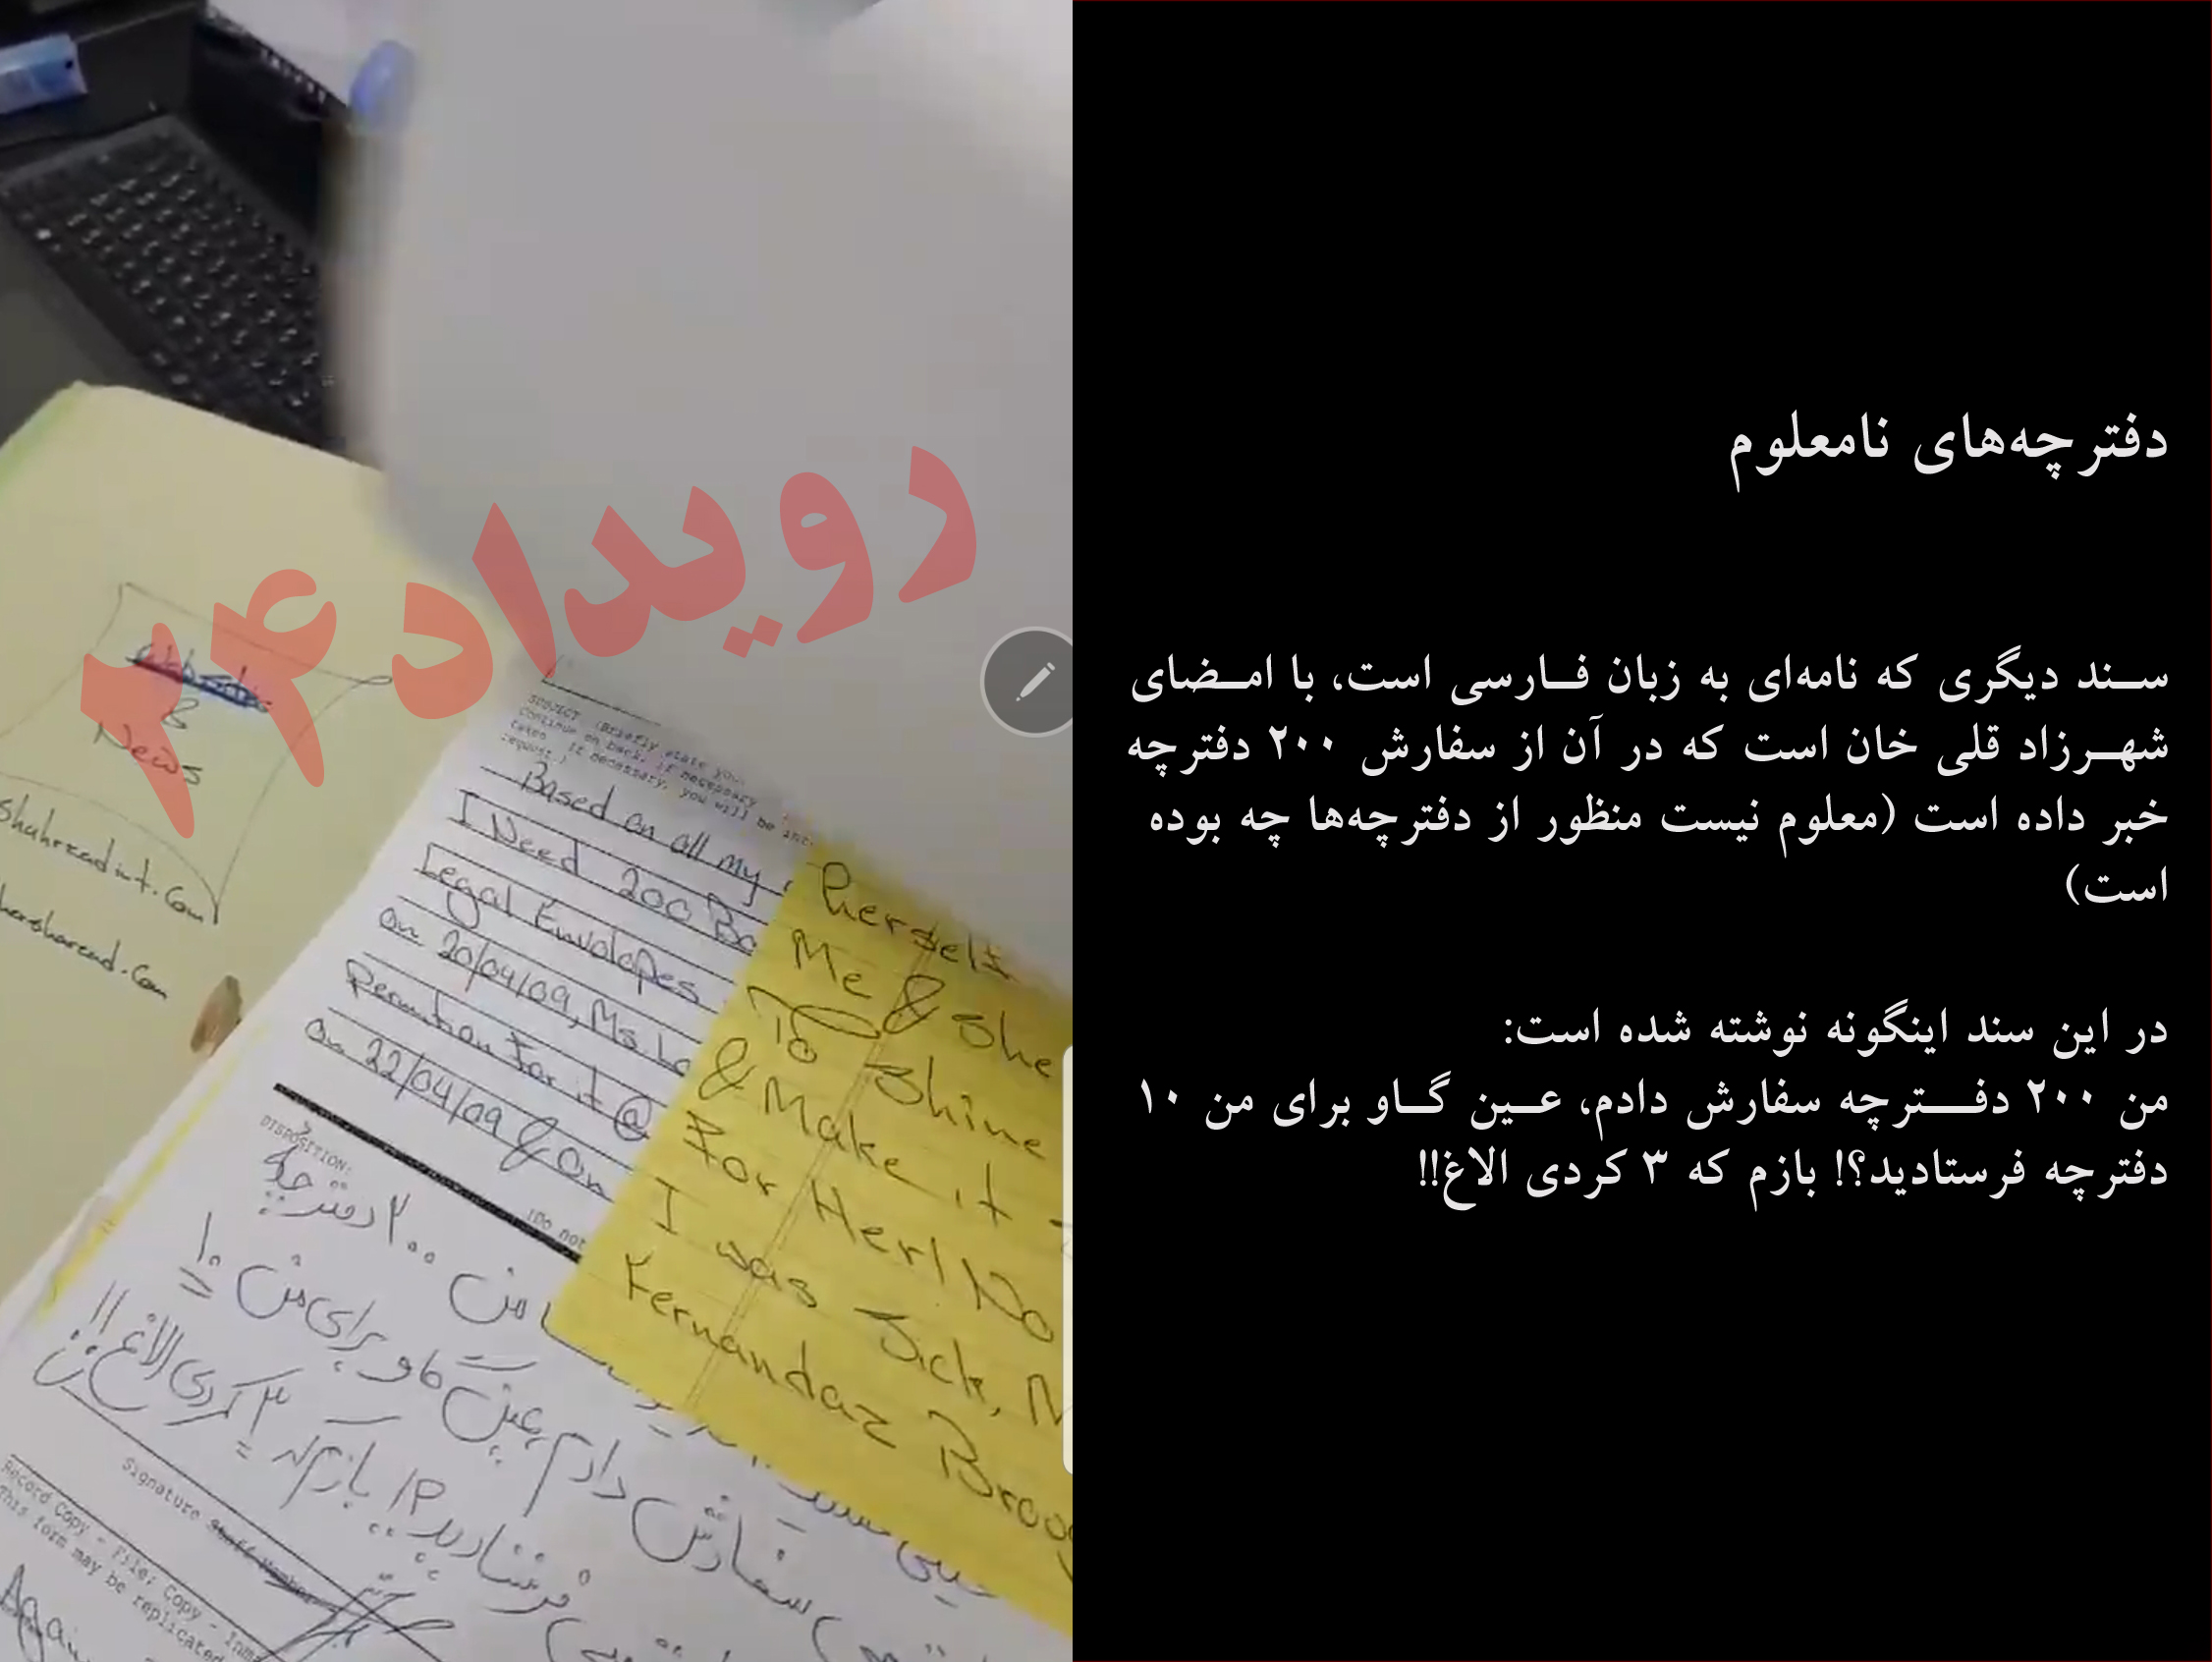 رویداد۲۴
&
News
shahrzadint.com
SUBJECT (Briefly state your
Continue on back, if necessary
taken. If necessary, you will be int
request.)
Based on all my
I Need 200 Bo
Legal Envolopes
on 20/04/09, Ms. Lo
Permition for it @
on 22/04/09 & on
DISPOSITION:
(Do not
من ۲۰۰ دفترچه
سفارش دادم عین گاو برای من ۱۰
فرستادید؟! بازم که ۳ کردی الاغ!!
Signature Staff Member
Record Copy - File; Copy - Inmate
This form may be replicated
Again
Herself
Me & She
To Shine
& Make it
For Her! No
I was Sick, M
Fernandaz Broo
دفترچه‌های نامعلوم
سند دیگری که نامه‌ای به زبان فارسی است، با امضای
شهرزاد قلی خان است که در آن از سفارش ۲۰۰ دفترچه
خبر داده است (معلوم نیست منظور از دفترچه‌ها چه بوده
است)
در این سند اینگونه نوشته شده است:
من ۲۰۰ دفترچه سفارش دادم، عین گاو برای من ۱۰
دفترچه فرستادید؟! بازم که ۳ کردی الاغ!!